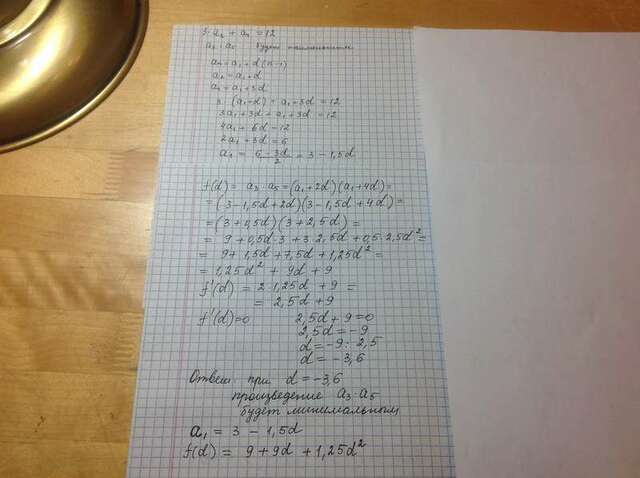 3·a₂ + a₄ = 12
a₃ · a₅ будет
aₙ = a₁ + d(n-1)
a₂ = a₁ + d
a₄ = a₁ + 3d
3·(a₁+d) + a₁ + 3d = 12
3a₁ + 3d + a₁ + 3d = 12
4a₁ + 6d = 12
2a₁ + 3d = 6
a₁ = (6 - 3d)/2 = 3 - 1,5d
f(d) = a₃ · a₅ = (a₁+2d)(a₁+4d) =
= (3 - 1,5d + 2d)(3 - 1,5d + 4d) =
= (3 + 0,5d)(3 + 2,5d) =
= 9 + 0,5d·3 + 3·2,5d + 0,5·2,5d² =
= 9 + 1,5d + 7,5d + 1,25d² =
= 1,25d² + 9d + 9
f'(d) = 2·1,25d + 9 =
= 2,5d + 9
f'(d)=0 2,5d + 9 = 0
2,5d = -9
d = -9 : 2,5
d = -3,6
Ответ при d = -3,6
произведение a₃·a₅
будет минимальным
a₁ = 3 - 1,5d
f(d) = 9 + 9d + 1,25d²